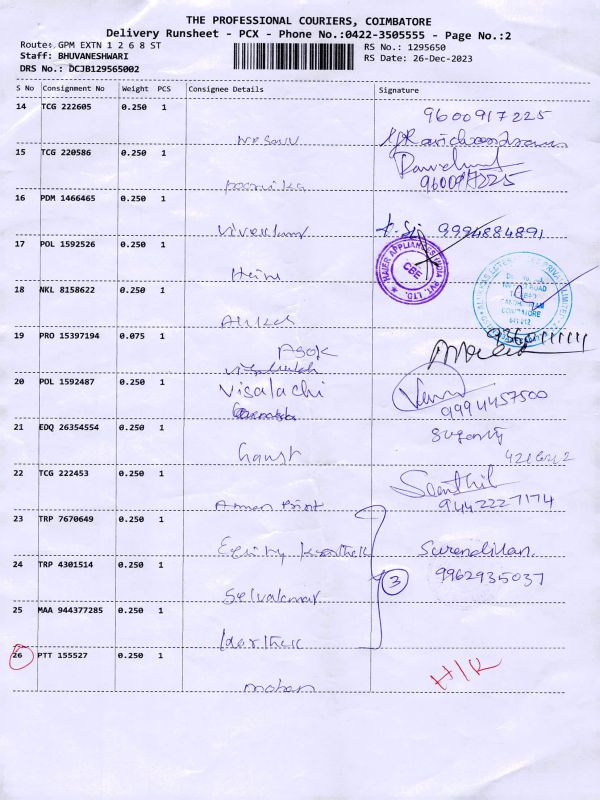 THE PROFESSIONAL COURIERS, COIMBATORE
Delivery Runsheet - PCX - Phone No.:0422-3505555 - Page No.:2
Route: GPM EXTN 1 2 6 8 ST
RS No.: 1295650
Staff: BHUVANESHWARI
RS Date: 26-Dec-2023
DRS No.: DCJB129565002
S No Consignment No Weight PCS Consignee Details Signature
14 TCG 222605 0.250 1
9600917225
15 TCG 220586 0.250 1
9600917225
poornika
16 PDM 1466465 0.250 1
9994884891
17 POL 1592526 0.250 1
HAIER APPLIANCES INDIA PVT. LTD.
CBE
18 NKL 8158622 0.250 1
COIMBATORE
641 012
19 PRO 15397194 0.075 1
ASOK
20 POL 1592487 0.250 1
Visalachi
9994457500
21 EDQ 26354554 0.250 1
22 TCG 222453 0.250 1
Senthil
9442227174
Aman Print
23 TRP 7670649 0.250 1
Equity Karthik
Surendiran.
24 TRP 4301514 0.250 1
3
9962935037
Selvakumar
25 MAA 944377285 0.250 1
Karthik
26 PTT 155527 0.250 1
H/R
mohan